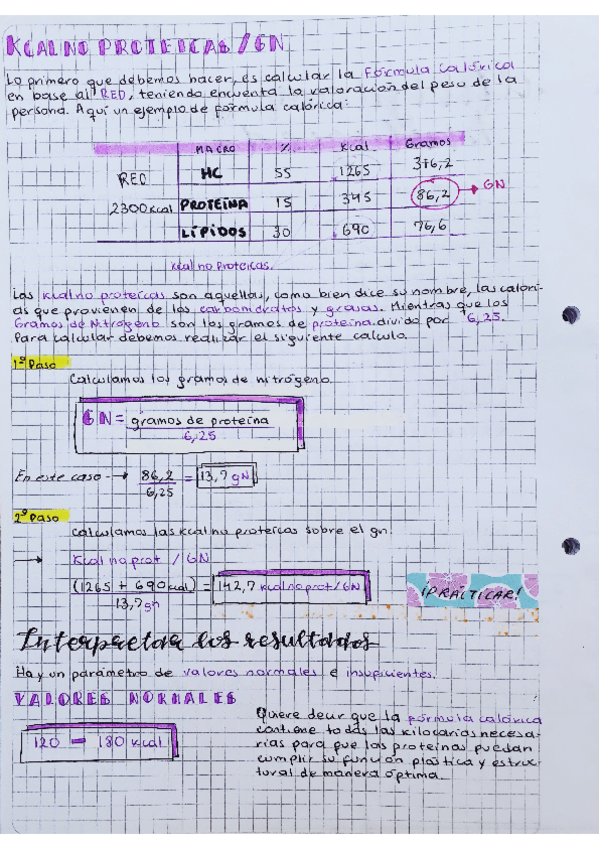 KCAL NO PROTEICAS / GN
Lo primero que debemos hacer, es calcular la Fórmula calórica
en base al RED, teniendo encuenta la valoración del peso de la
persona. Aquí un ejemplo de fórmula calórica:
MACRO % Kcal Gramos
RED HC 55 1265 316,2
2300 kcal PROTEÍNA 15 345 86,2 → GN
LÍPIDOS 30 690 76,6
Kcal no Proteicas.
Las kcal no proteicas son aquellas, como bien dice su nombre, las calorí-
as que provienen de los carbohidratos y grasas. Mientras que los
Gramos de Nitrógeno son los gramos de proteína dividido por 6,25.
Para calcular debemos realizar el siguiente calculo.
1º Paso
Calculamos los gramos de nitrógeno.
GN = gramos de proteína
6,25
En este caso → 86,2 = 13,7 gN
6,25
2º Paso
Calculamos las kcal no proteicas sobre el gn.
→ Kcal no prot / GN
(1265 + 690 kcal) = 142,7 kcal no prot / GN
13,7 gn
¡PRACTICAR!
Interpretar los resultados
Hay un parámetro de valores normales e insuficientes.
VALORES NORMALES
120 - 180 kcal
Quiere decir que la fórmula calórica
contiene todas las kilocalorías necesa-
rias para que las proteínas puedan
cumplir su función plástica y estruc-
tural de manera óptima.